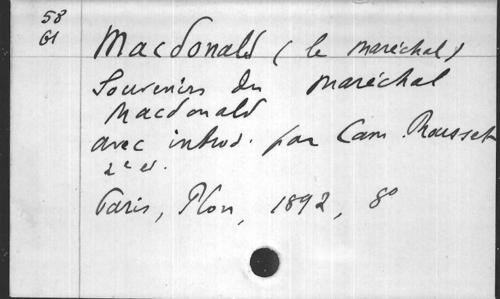 58
G1
Macdonald (le maréchal)
Souvenirs du maréchal
Macdonald
avec introd. par Cam. Rousset
2e éd.
Paris, Plon, 1892, 8º